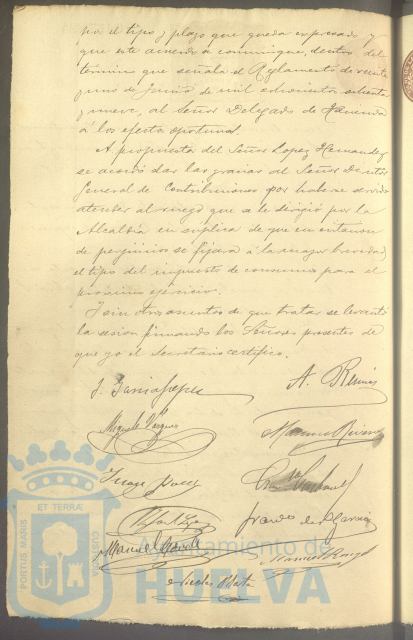 por el tipo y plazo que queda expresado y
que este acuerdo se comunique, dentro del
término que señala el Reglamento de veinte
y uno de Junio de mil ochocientos ochenta
y nueve, al Señor Delegado de Hacienda
á los efectos oportunos.
A propuesta del Señor Lopez Hernandez
se acordó dar las gracias al Señor Director
General de Contribuciones por haberse servido
atender al ruego que se le dirigió por la
Alcaldia en suplica de que en evitacion
de perjuicios se fijara á la mayor brevedad
el tipo del impuesto de consumos para el
próximo ejercicio.
Y sin otros asuntos de que tratar se levantó
la sesion firmando los Señores presentes de
que yo el Secretario certifico.
J. Garcia Lopez
A.
Miguel Vazquez
Manuel Rivera
Juan
Garcia
Manuel
Manuel
Mata
PORTUS MARIS
ET TERRÆ
CUSTODIA
Ayuntamiento de
HUELVA